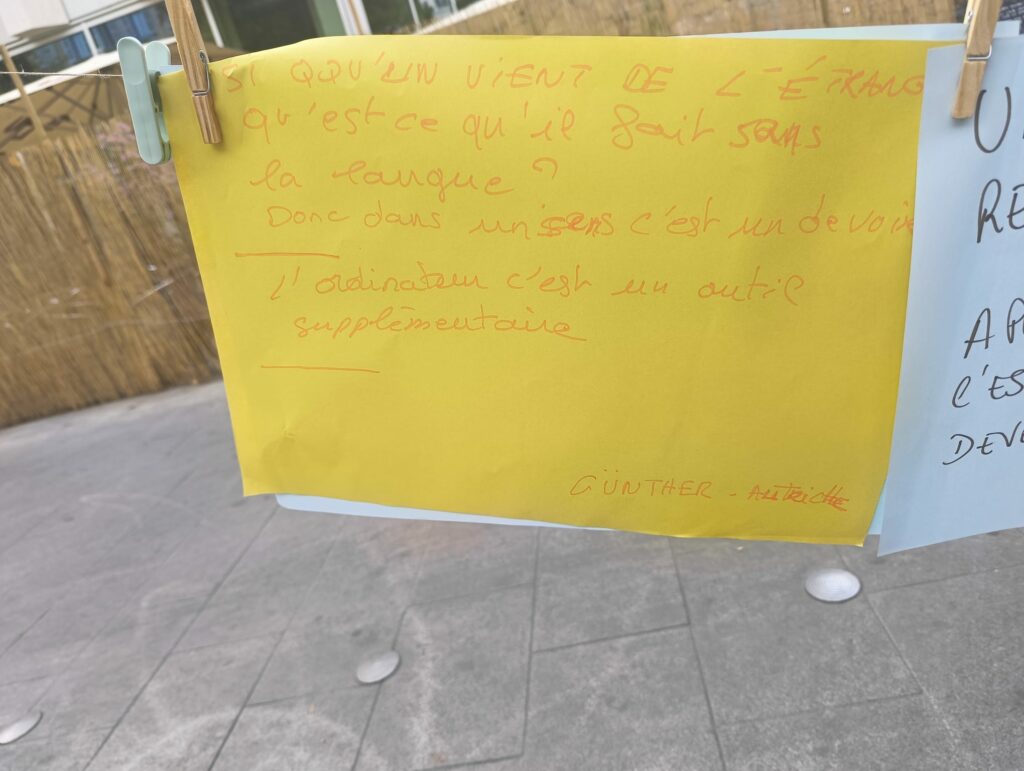 SI QQU'UN VIENT DE L'ÉTRANG
qu'est ce qu'il fait sans
la langue ?
Donc dans un sens c'est un devoir
L'ordinateur c'est un outil
supplémentaire
GÜNTHER - Autriche
U
RE
AP
C'ES
DEVO